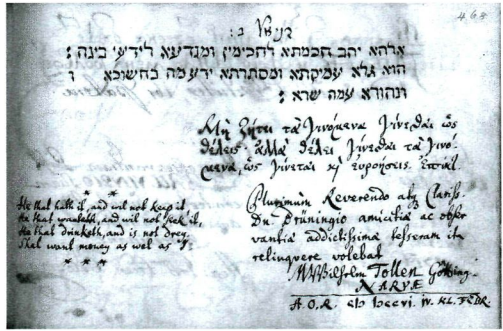 דניאל ב:
אלהא יהב חכמתא לחכימין ומנדעא לידעי בינה :
הוא גלא עמיקתא ומסתרתא ידע מה בחשוכא ו
ונהורא עמה שרא :
Μὴ ζήτει τὰ γινόμενα γίνεσθαι ὡς
θέλεις· ἀλλὰ θέλε γίνεσθαι τὰ γινό-
μενα, ὡς γίνεται κὶ εὐροήσεις.
He that hath it, and wil not keep it,
He that wanteth, and wil not seek it,
He that drinketh, and is not drey,
Shal want money as wel as I.
Plurimum Reverendo atq Clariss.
Dn. Brüningio amicitiæ ac obser
vantiæ addictissimæ tesseram
relinquere volebat
Wilhelm Tollen Götting.
NARVÆ
A.O.R. IV. KL. FEBR.